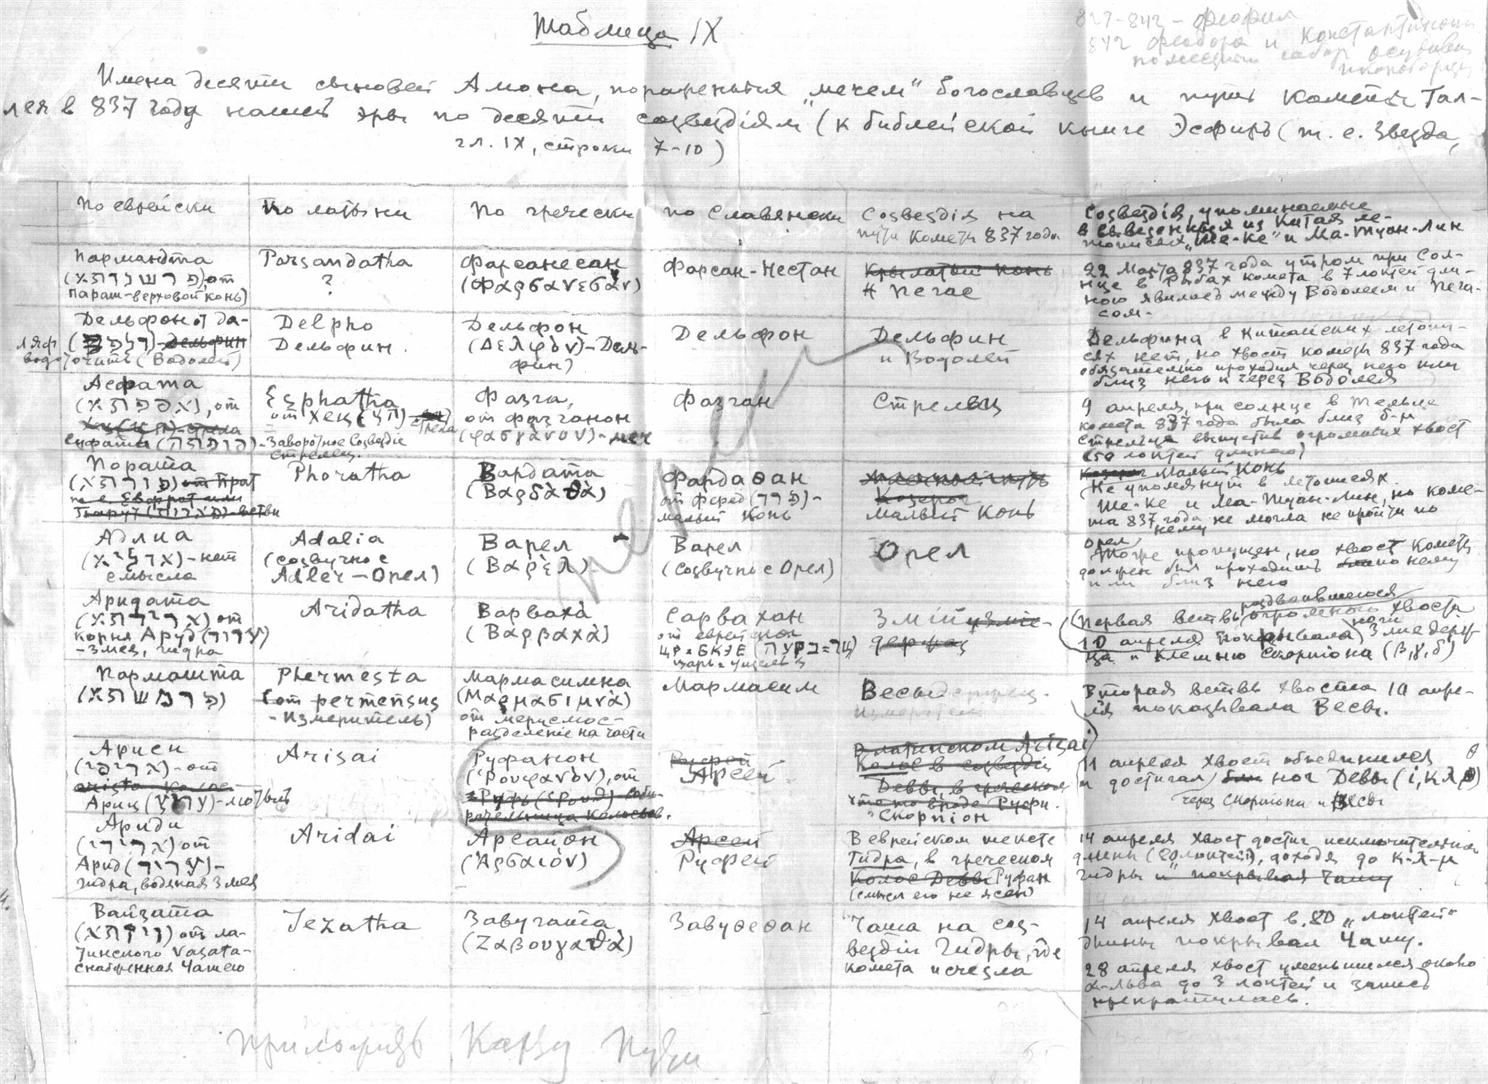 Таблица IX
827-842 - Феофил
842 Феодора и Константин
Имена десяти сыновей Амона, пораженныя "мечем" богославцев и путь кометы Гал-
лея в 837 году нашей эры по десяти созвездіям (к библейской книге Эсфирь (т. е. Звезда,
гл. IX, строки 7-10)
По еврейски
По латыни
По гречески
по Славянски
Созвездія на
пути Кометы 837 года
Созвездія, упоминаемые
в вывезенных из Китая ле-
тописях "Ше-Ке" и Ма-Туан-Лин
Пармандта
(פרשנדתא), от
Параш-верховой конь)
Parsandatha
?
Фарсанесан
(Φαρσανεσὰν)
Фарсан-Нестан
Крылатый Конь
Пегас
22 Марта 837 года утром при Сол-
нце в Рыбах комета в 7 локтей дли-
ною явилась между Водолеем и Пега-
сом.
Дельфон от да-
ляф (דלפון) - дельфин
водоточить (Водолей)
Delpho
Дельфин.
Дельфон
(Δελφὼν) - Дель-
фин)
Дельфон
Дельфин
и Водолей
Дельфина в Китайских летопи-
сях нет, но хвост кометы 837 года
обязательно проходил через него или
близ него и через Водолея
Асфата
(אספתא), от
Суфаты (סופתה) - Заворотное Созвездіе
стрельца.
Esphatha
от хец (חץ) - стрела
Фазга,
от фазганон
(φασγάνον) - меч
Фазган
Стрелец
9 апреля, при солнце в Тельце
комета 837 года была близ
Стрельца выпустив огромный хвост
(50 локтей длиною)
Пората
(פורתא) от Прат
т. е. Евфрат или
Phoratha
Вардата
(Βαρδὰθὰ)
Фардаѳан
от фаред (פרד) -
малый Конь
Козерог
Малый Конь
Малый Конь
Не упомянут в летописях
Ше-Ке и Ма-Туан-Лин, но коме-
та 837 года не могла не пройти по
нему
Адлиа
(אדליא) - нет
смысла
Adalia
(созвучно с
Adler - Орел)
Варел
(Βαρὲλ)
Варел
(созвучно с Орел)
Орел
Орел
тоже пропущен, но хвост Кометы
должен был проходить по нему
или близ него
Аридата
(ארידתא) от
корня Аруд (ערוד)
- змея, гидра
Aridatha
Варвахà
(Βαρβαχὰ)
Сарвахан
от еврейскаго
царь ущелья
Змій
Первая ветвь раздвоившегося огромного хвоста
10 апреля покрывала ноги Змиедерж-
ца и клешню Скорпіона (β, γ, δ)
Пармашта
(פרמשתא)
Phermesta
(от permensus
- Измеритель)
Мармасимна
(Μαρμασιμνὰ)
от мерисмос -
разделеніе на части
Мармасим
Весы
Вторая ветвь хвоста 10 апре-
ля показывала Весы.
Ариси
(אריסי) - от
Ариц (עריץ) - лютый
Arisai
Руфанон
(Ῥουφανὸν), от
Арсей
В латинском Arisai
Колос в созвездіи
Девы, в греческом
что то вроде Руфи.
Скорпіон
11 апреля хвост объединился
и достигал ног Девы
через Скорпіона и Весы
Ариди
(ארידי) от
Арид (עריד) -
гидра, водяная Змея
Aridai
Арсаион
(Ἀρσαιόν)
Арсей
Руфей
В еврейском тексте
Гидра, в греческом
Колос Девы Руфан
(смысл его не ясен)
14 апреля хвост достиг исключительной
длины (80 локтей), доходя до
гидры и покрывая Чашу
Вайзата
(ויזתא) от ла-
тинского vasata -
снабженная Чашею
Jezatha
Завугата
(Ζαβουγαθὰ)
Завуѳеѳан
Чаша на соз-
вездіи Гидры, где
комета исчезла
14 апреля хвост в 80 "локтей"
длины покрывал Чашу.
28 апреля хвост уменьшился около
α-Льва до 3 локтей и запись
прекратилась.
Приложить Карту Пути